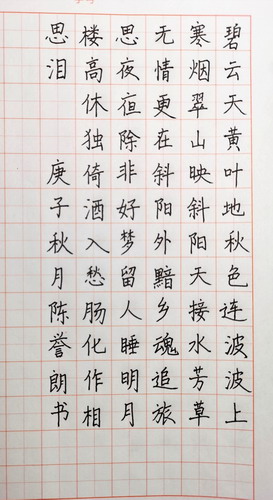 碧云天黄叶地秋色连波波上
寒烟翠山映斜阳天接水芳草
无情更在斜阳外黯乡魂追旅
思夜亱除非好梦留人睡明月
楼高休独倚酒入愁肠化作相
思泪 庚子秋月陈誉朗书